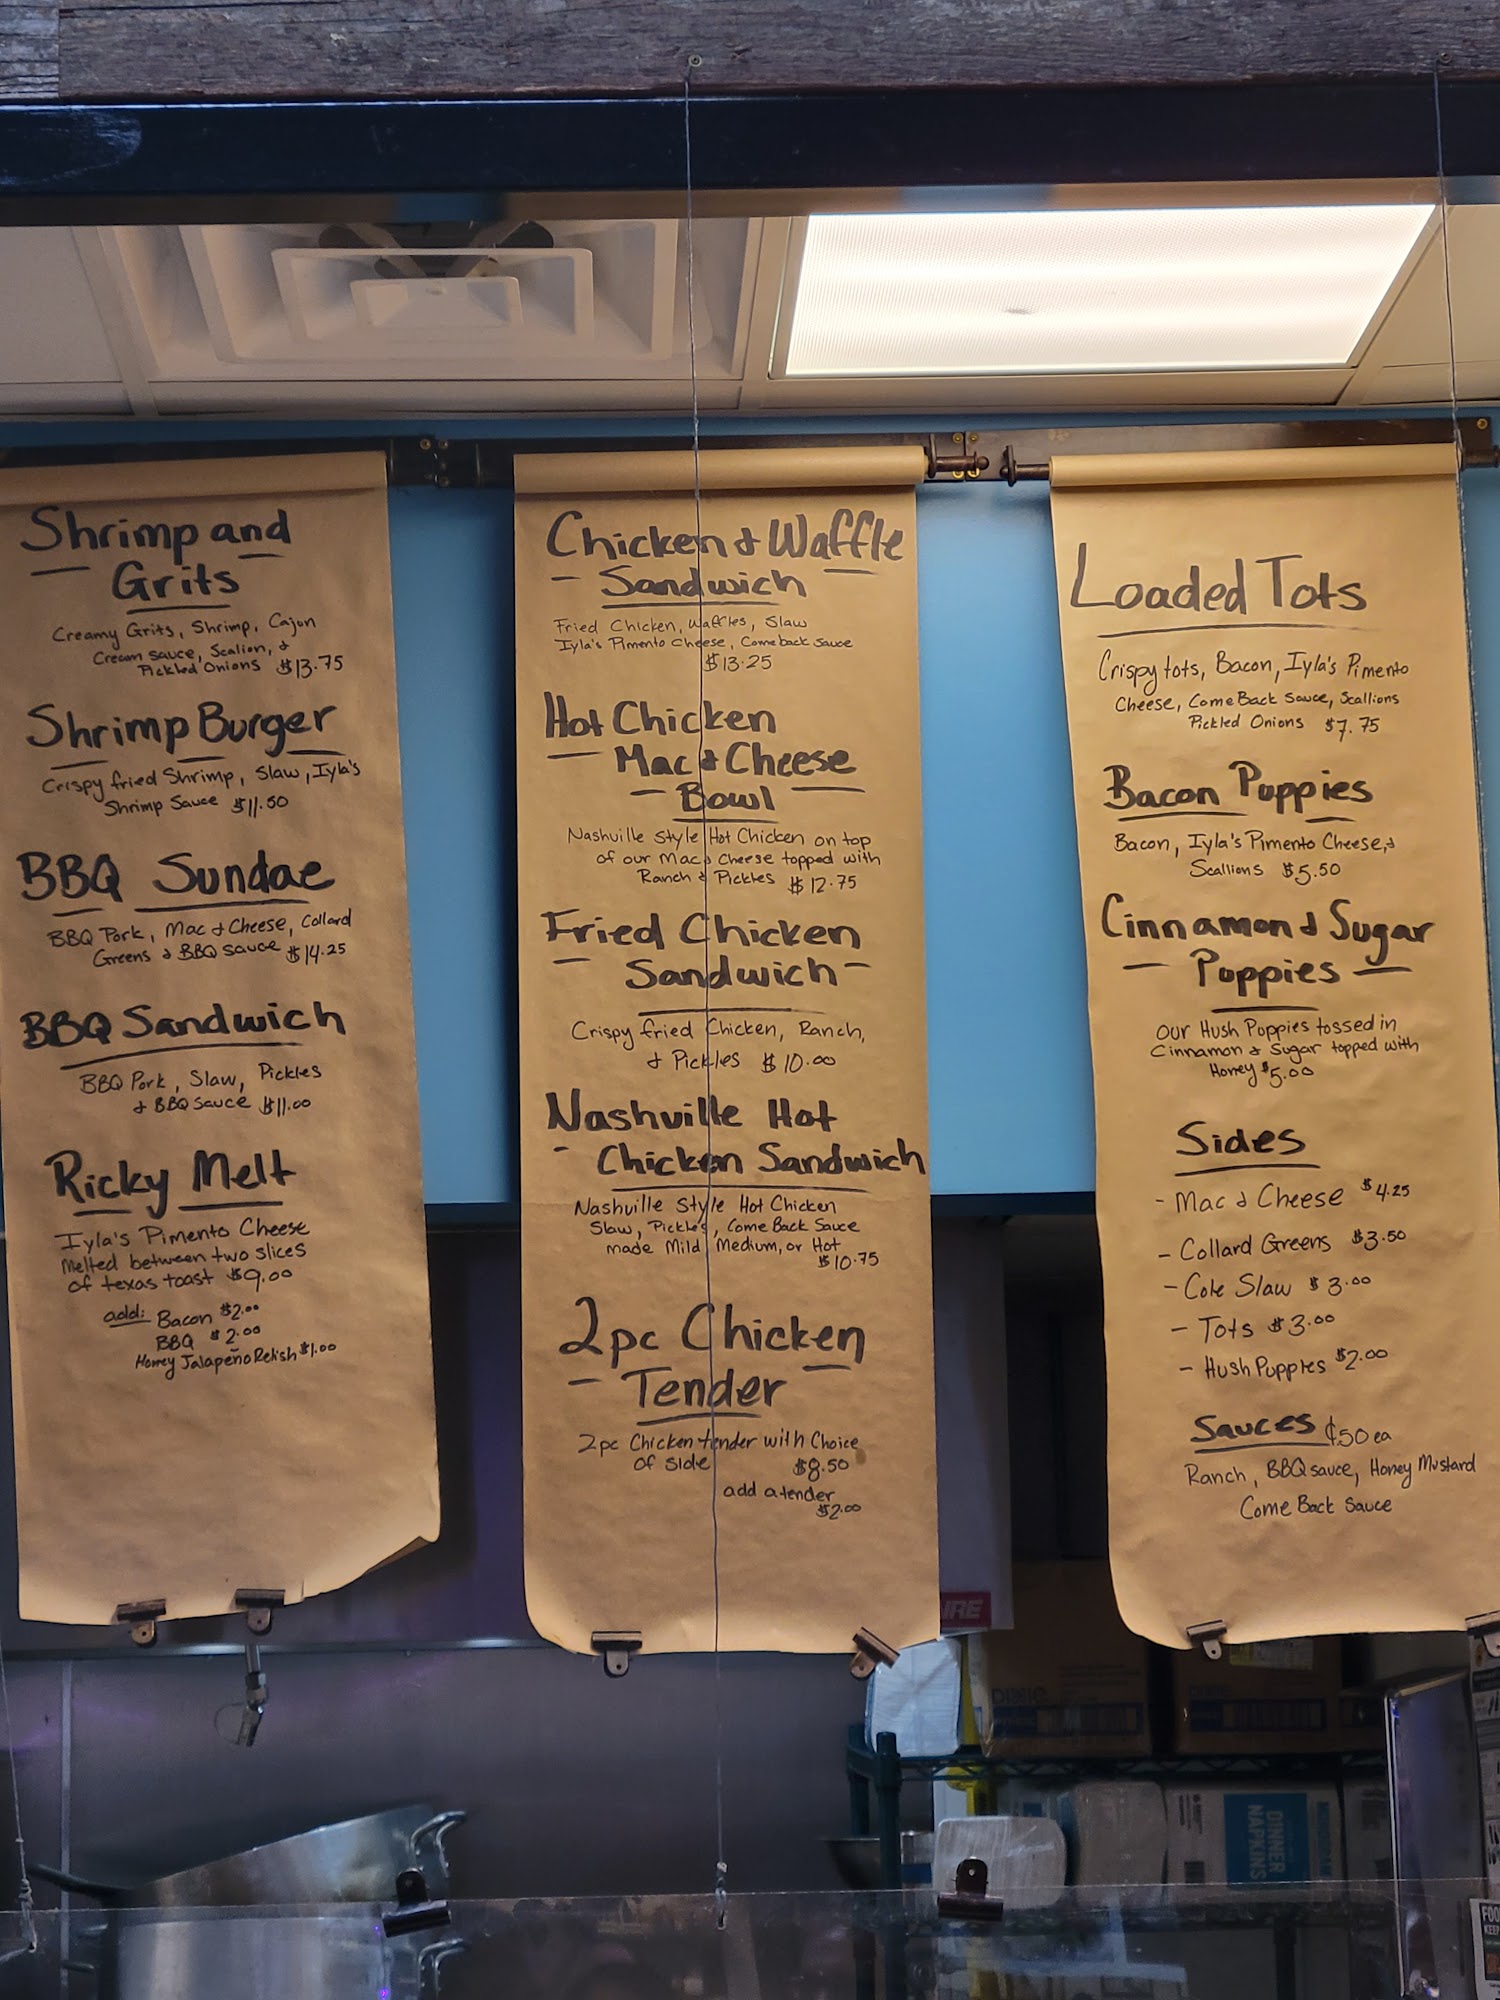 Shrimp and
Grits
Creamy Grits, Shrimp, Cajun
Cream sauce, Scalion, &
Pickled Onions $13.75
Shrimp Burger
Crispy fried Shrimp, Slaw, Iyla's
Shrimp Sauce $11.50
BBQ Sundae
BBQ Pork, Mac & Cheese, Collard
Greens & BBQ sauce $14.25
BBQ Sandwich
BBQ Pork, Slaw, Pickles
& BBQ sauce $11.00
Ricky Melt
Iyla's Pimento Cheese
Melted between two slices
of texas toast $9.00
add: Bacon $2.00
BBQ $2.00
Honey Jalapeño Relish $1.00
Chicken & Waffle
Sandwich
Fried Chicken, Waffles, Slaw
Iyla's Pimento Cheese, Comeback sauce
$13.25
Hot Chicken
Mac & Cheese
Bowl
Nashville Style Hot Chicken on top
of our Mac & Cheese topped with
Ranch & Pickles $12.75
Fried Chicken
Sandwich
Crispy fried Chicken, Ranch,
& Pickles $10.00
Nashville Hot
Chicken Sandwich
Nashville Style Hot Chicken
Slaw, Pickles, Come Back Sauce
made Mild, Medium, or Hot
$10.75
2pc Chicken
Tender
2pc Chicken tender with Choice
of side $8.50
add a tender
$2.00
Loaded Tots
Crispy tots, Bacon, Iyla's Pimento
Cheese, Come Back Sauce, Scallions
Pickled Onions $7.75
Bacon Puppies
Bacon, Iyla's Pimento Cheese, &
Scallions $5.50
Cinnamon & Sugar
Puppies
Our Hush Puppies tossed in
Cinnamon & Sugar topped with
Honey $5.00
Sides
- Mac & Cheese $4.25
- Collard Greens $3.50
- Cole Slaw $3.00
- Tots $3.00
- Hush Puppies $2.00
Sauces ¢50 ea
Ranch, BBQ sauce, Honey Mustard
Come Back Sauce
DIXIE
DINNER
NAPKINS